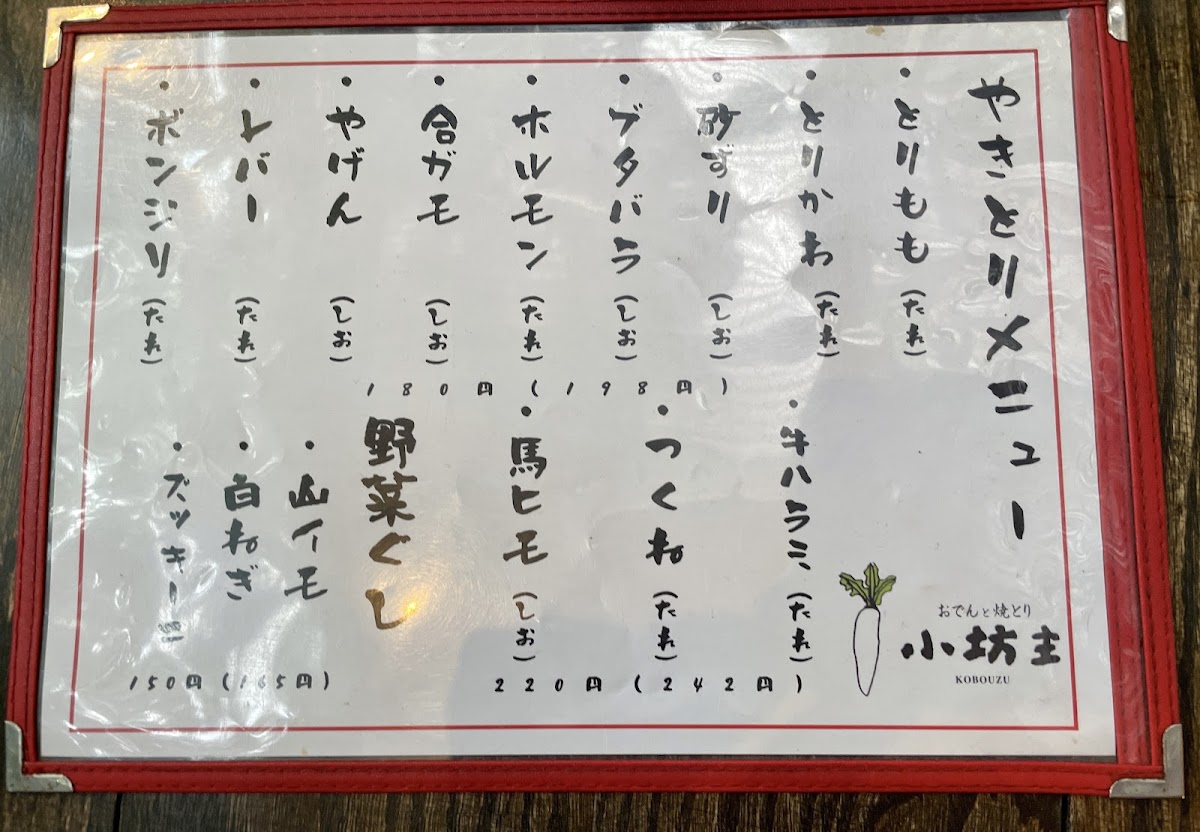 やきとりメニュー
・とりもも（たれ）
・とりかわ（たれ）
・砂ずり（しお）
・ブタバラ（しお）
・ホルモン（たれ）
・合ガモ（しお）
・やげん（しお）
・レバー（たれ）
・ボンジリ（たれ）
180円（198円）
・牛ハラミ（たれ）
・つくね（たれ）
・馬ヒモ（しお）
220円（242円）
野菜ぐし
・山イモ
・白ねぎ
・ズッキーニ
150円（165円）
おでんと焼とり
小坊主
KOBOUZU